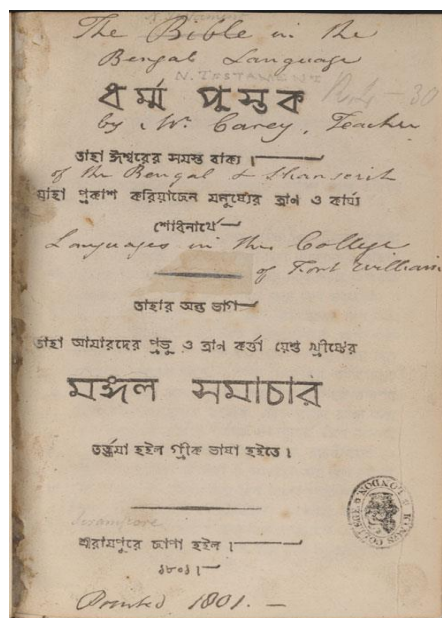 The Bible in the
Bengal Language
N. TESTAMENT
ধর্ম্ম পুস্তক
by W. Carey, Teacher
তাহা ঈশ্বরের সমস্ত বাক্য।
of the Bengal & Shanscrit
যাহা প্রকাশ করিয়াছেন মনুষ্যের ত্রাণ ও কার্য্য
শোধনার্থে
Languages in the College
of Fort William
তাহার অন্ত ভাগ
তাহা আমারদের প্রভু ও ত্রাণ কর্ত্তা য়েশু খ্রীষ্টের
মঙ্গল সমাচার
তর্জ্জমা হইল গ্রীক ভাষা হইতে।
Serampore
শ্রীরামপুরে ছাপা হইল।
১৮০১।
Printed 1801.
KINGS COLLEGE LONDON